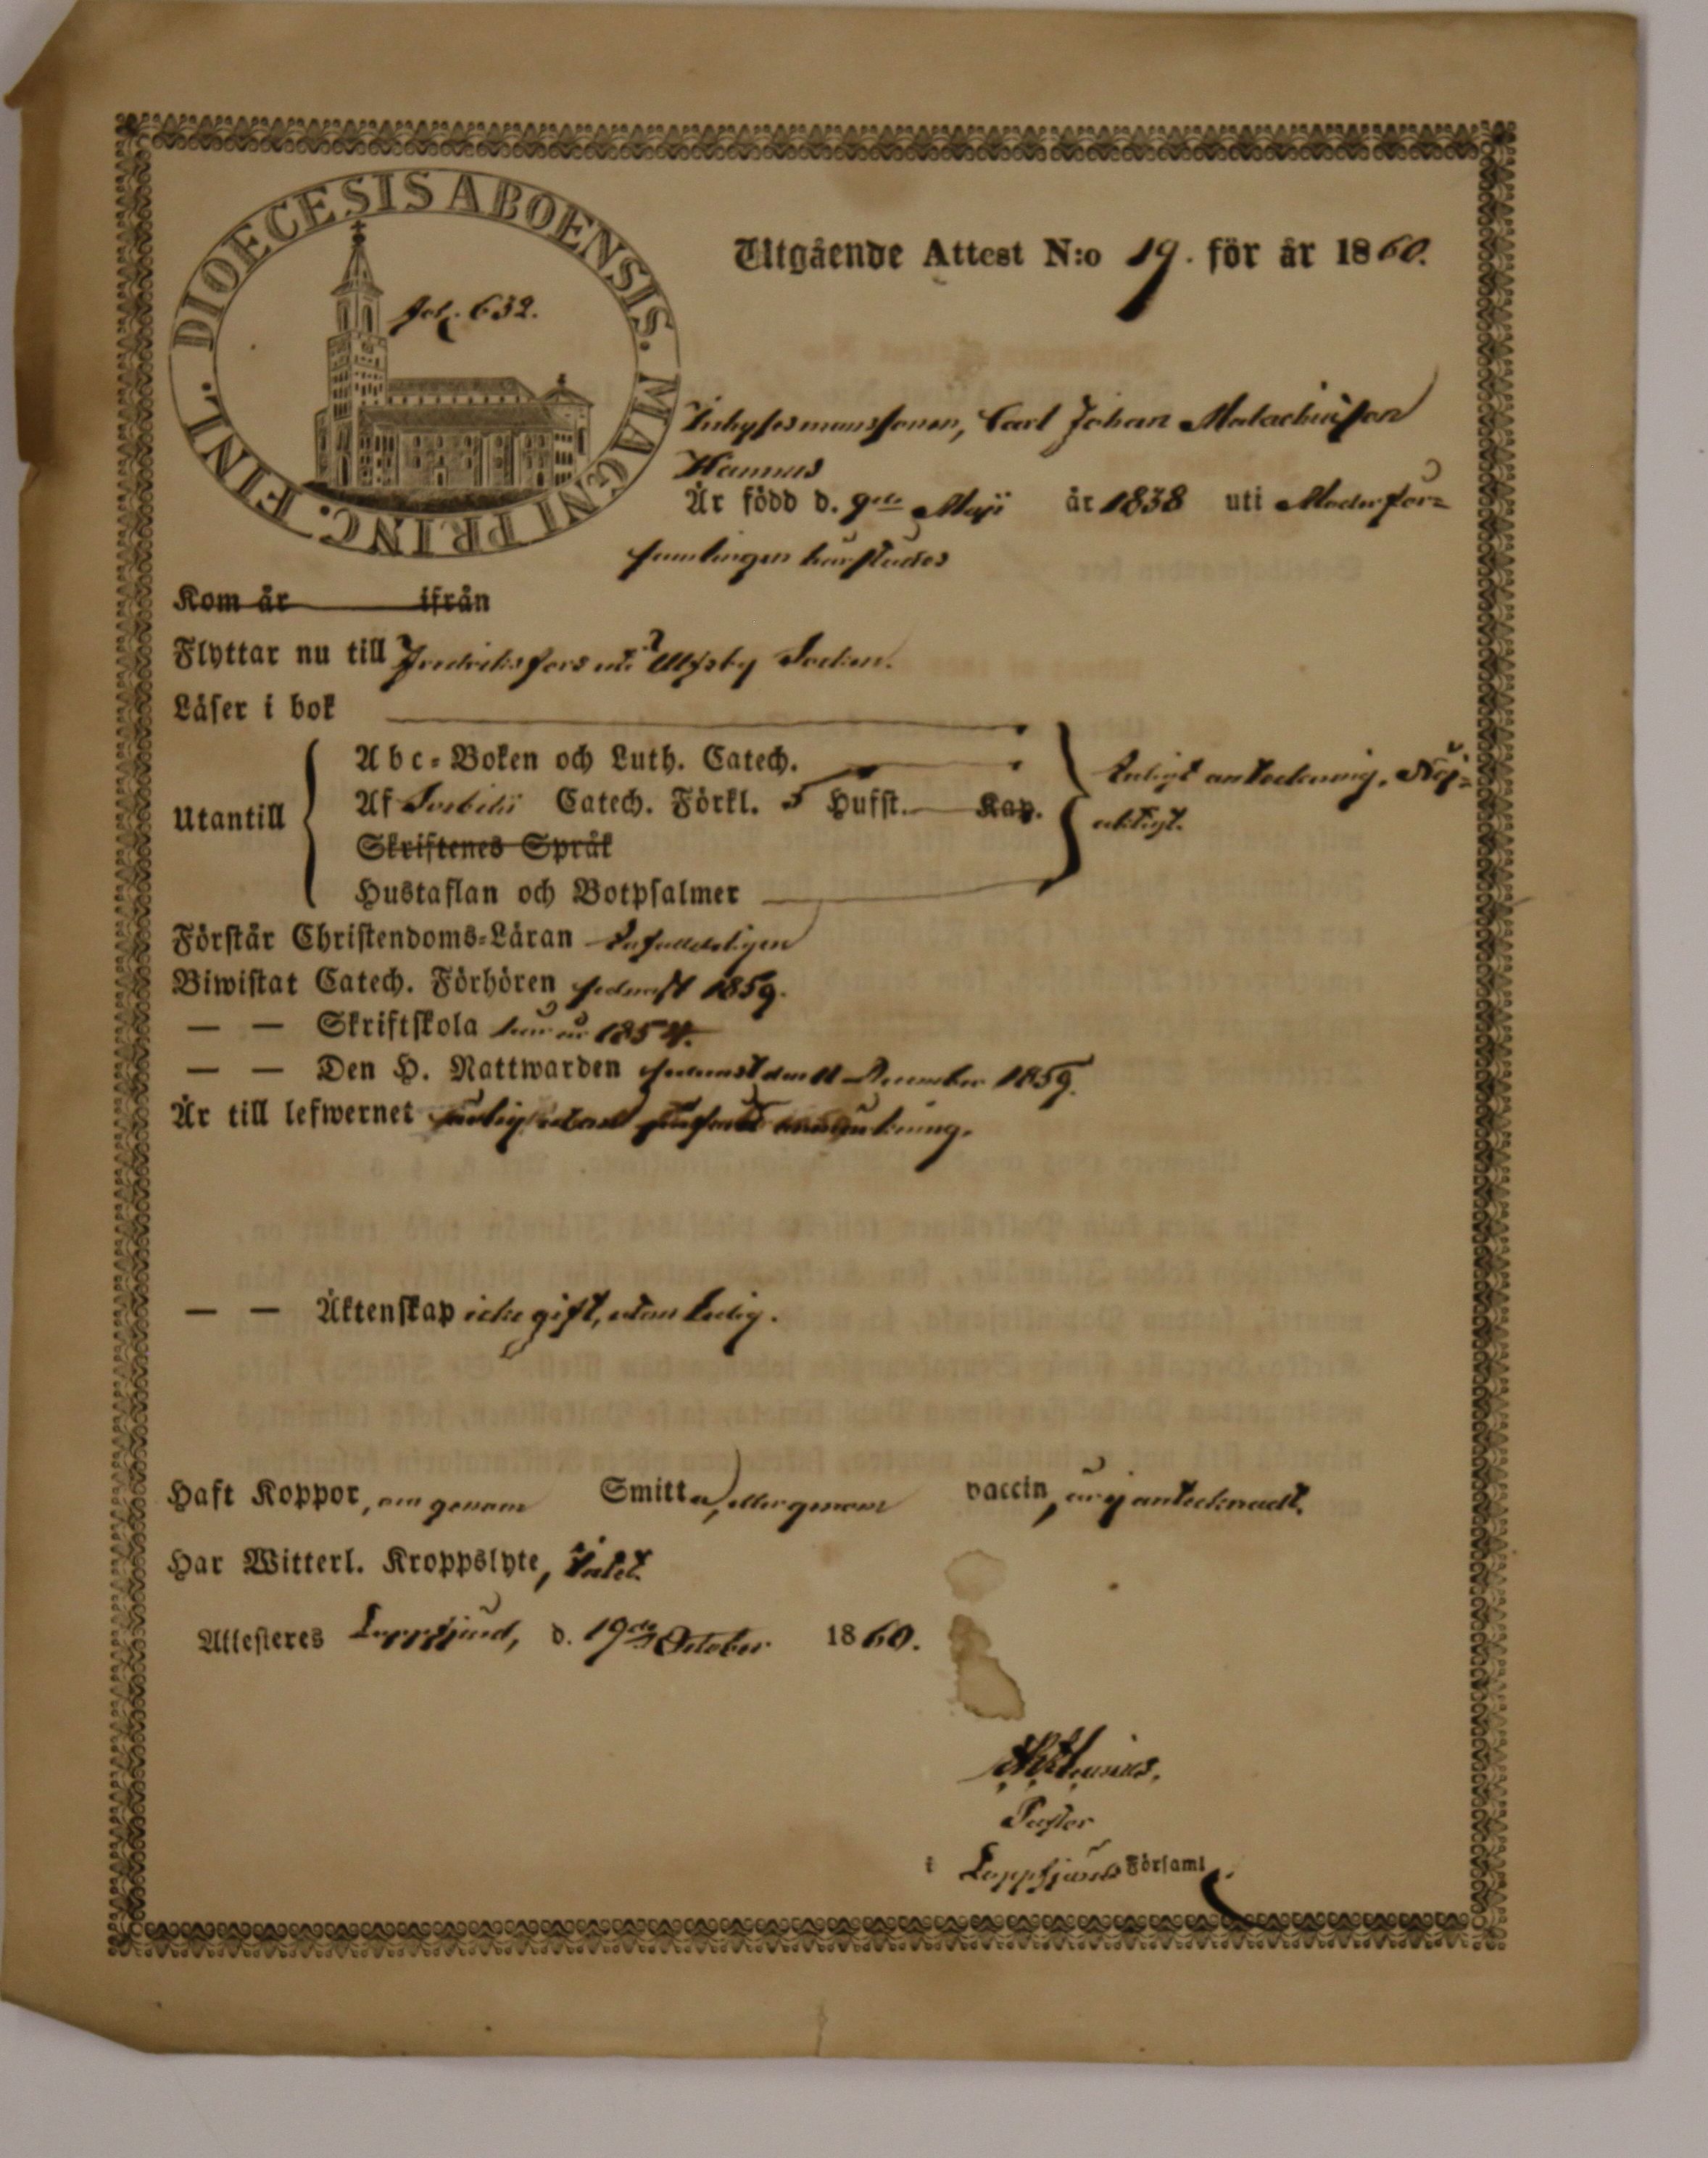 DIOECESIS ABOENSIS. MAGNI PRINC. FINL.
Fol. 632.
Utgående Attest N:o 19. för år 1860.
Inhysesmanssonen, Carl Johan Malachiasson
Hannus
Är född d. 9de Maji år 1838 uti Moderför-
samlingen härstädes
Kom år ifrån
Flyttar nu till Fredriksfors uti Ulfsby Socken.
Läser i bok
Utantill
Abc-Boken och Luth. Catech.
Af Svebilii Catech. Förkl. 5 Hufst. Kap.
Skriftenes Språk
Hustaflan och Botpsalmer
enligt anteckning, Nöj-
aktigt.
Förstår Christendoms-Läran enfaldeligen
Biwistat Catech. Förhören sednast 1859.
— — Skriftskola här år 1854.
— — Den H. Nattwarden sednast den 11 December 1859.
Är till lefwernet utan anmärkning.
— — Äktenskap icke gift, utan ledig.
Haft Koppor, om genom Smitta, eller genom vaccin, är ej antecknadt.
Har Witterl. Kroppslyte, intet.
Attesteres Lappfjärd, d. 19de October 1860.
Pastor
i Lappfjärds Församl.